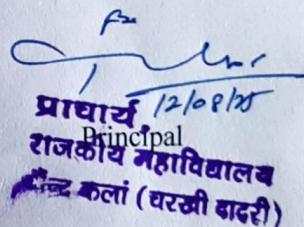 For
12/08/25
प्राचार्य,
Principal
राजकीय महाविद्यालय
कलां (चरखी दादरी)